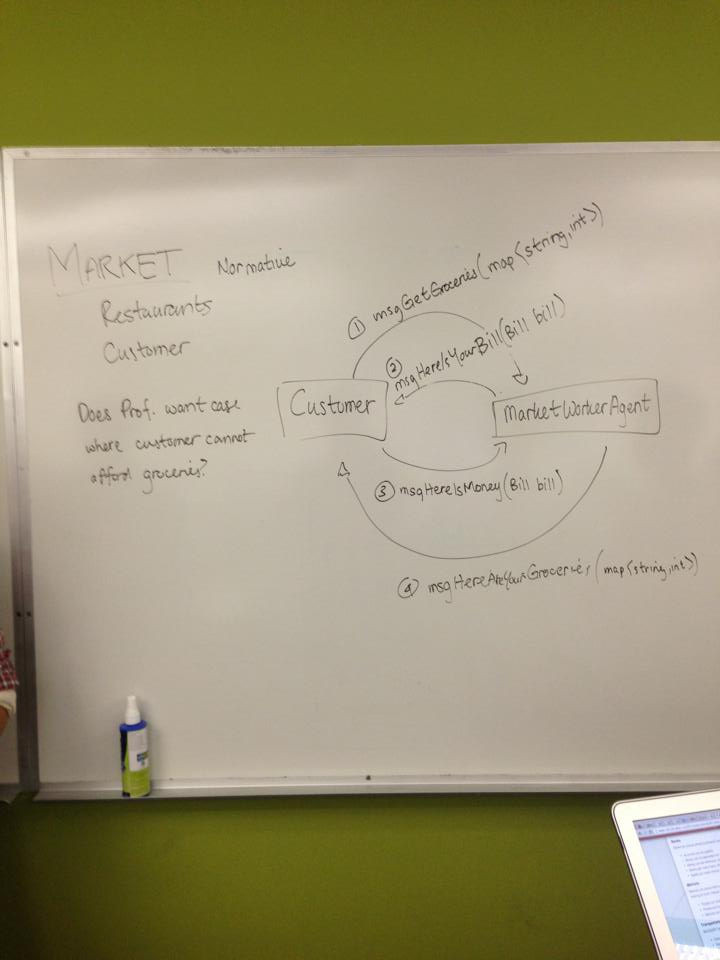 MARKET Normative
Restaurants
Customer
Does Prof. want case
where customer cannot
afford groceries?
① msgGetGroceries(map<string,int>)
② msgHereIsYourBill(Bill bill)
Customer
MarketWorkerAgent
③ msgHereIsMoney(Bill bill)
④ msgHereAreYourGroceries(map<string,int>)